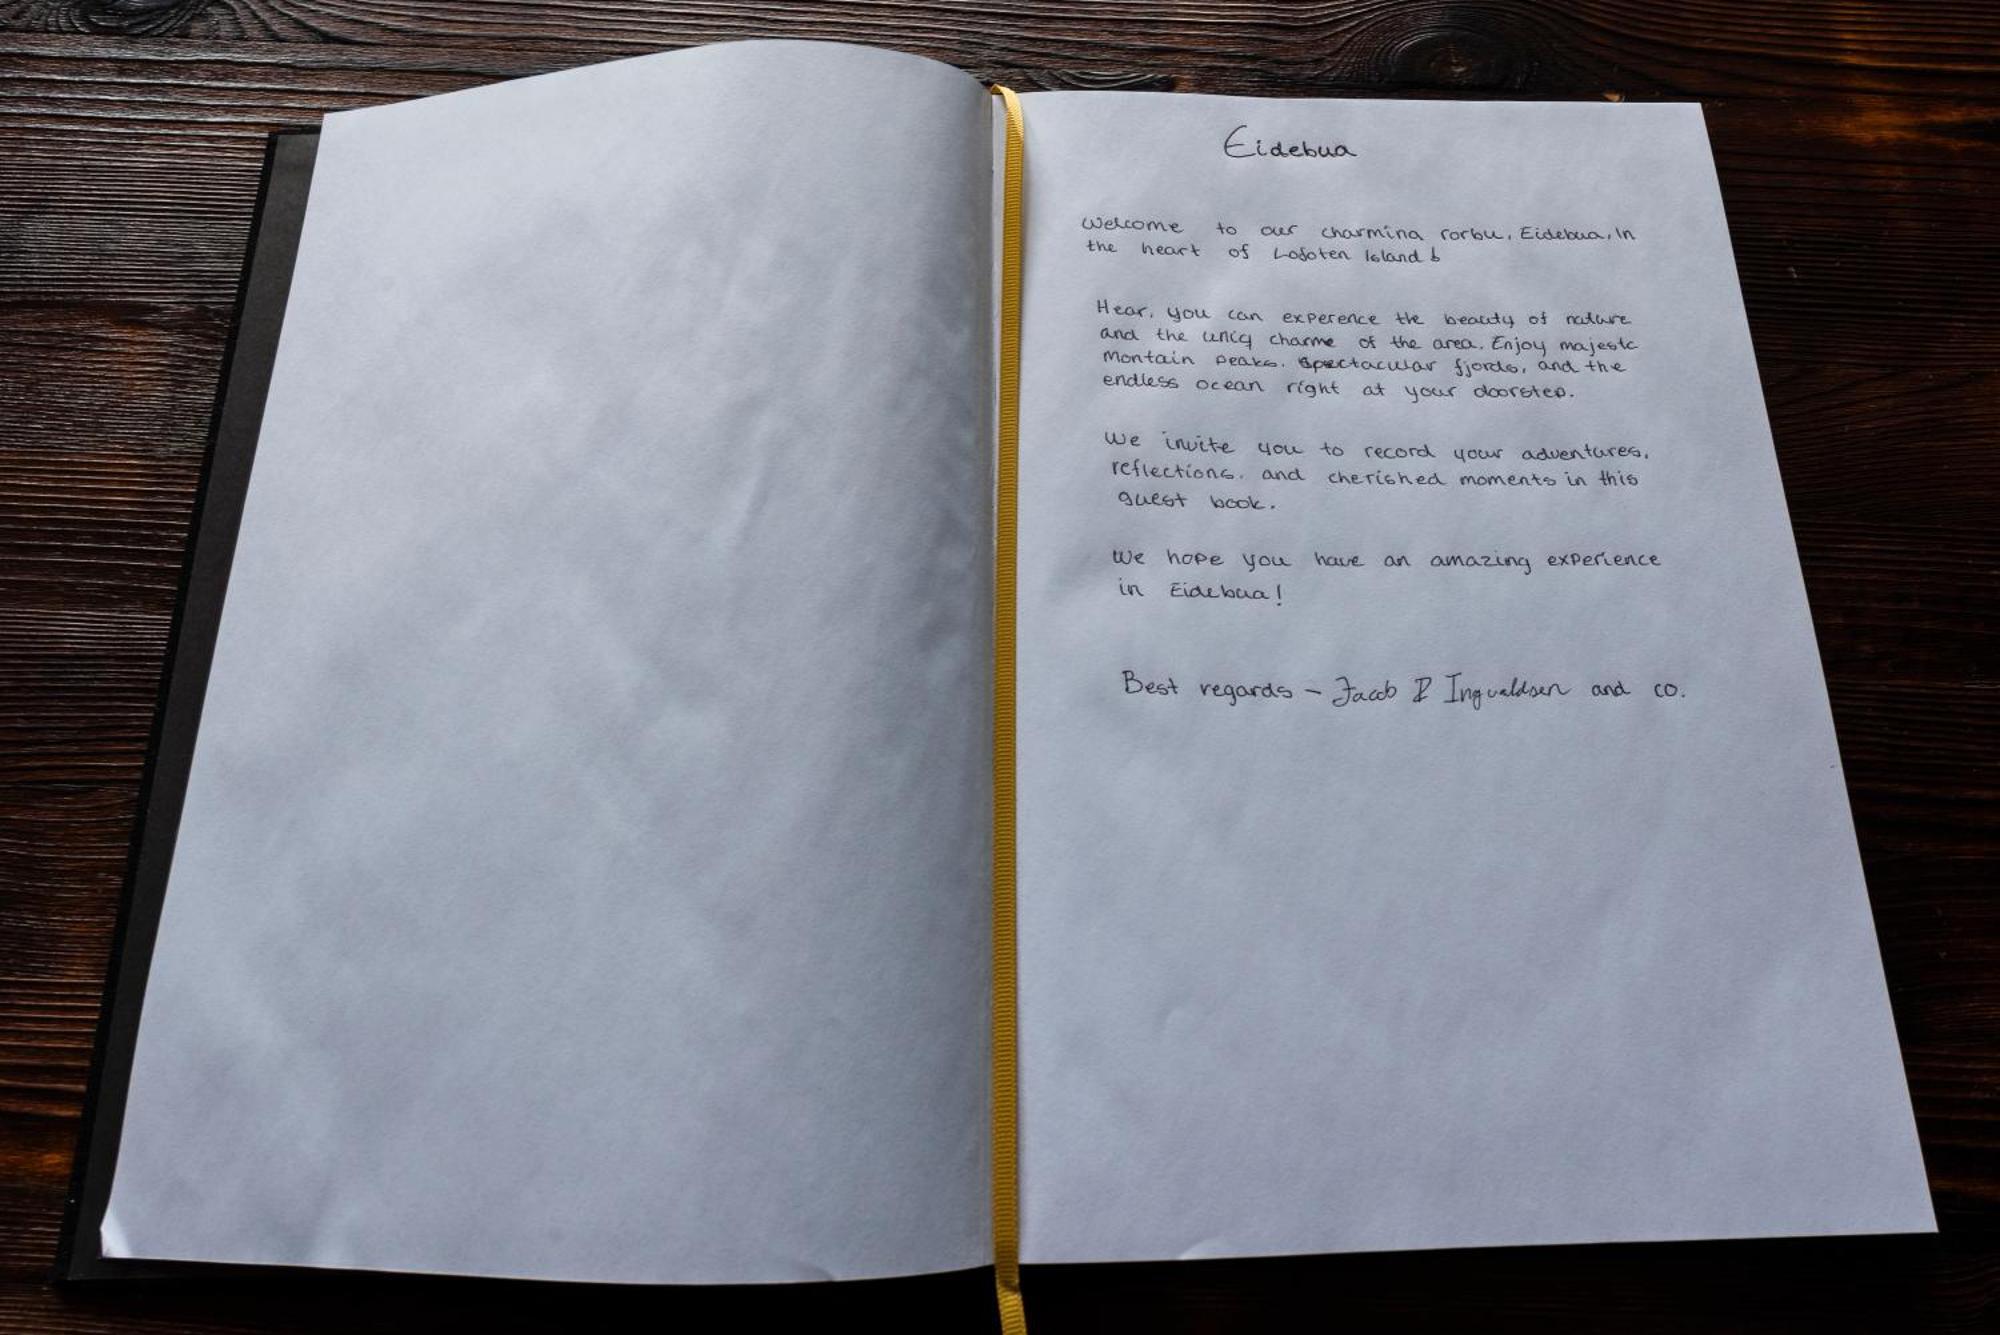 Eidebua
Welcome to our charmina rorbu, Eidebua, in
the heart of Lofoten Islands
Hear, you can experence the beauty of nature
and the unicq charme of the area. Enjoy majestc
montain peaks. spectacular fjords, and the
endless ocean right at your doorstep.
We invite you to record your adventures,
reflections. and cherished moments in this
guest book.
We hope you have an amazing experience
in Eidebua!
Best regards - Jacob Ingvaldsen and co.